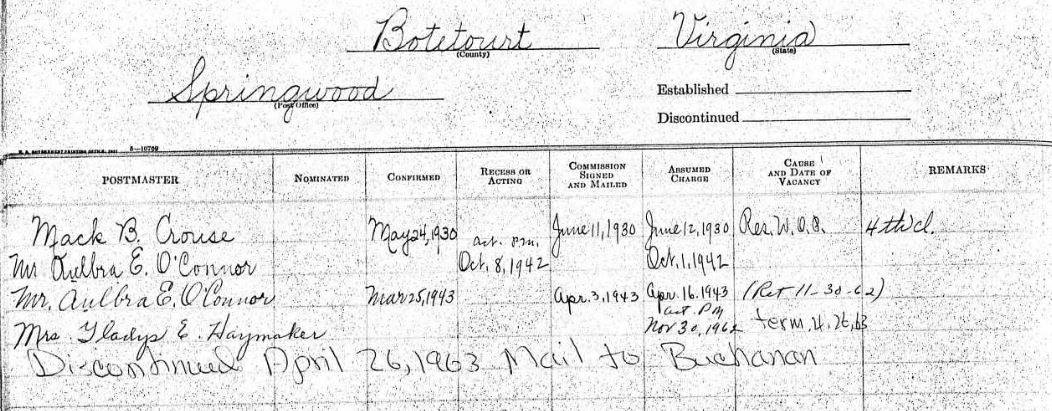 Botetourt Virginia
(County) (State)
Springwood
(Post Office)
Established
Discontinued
5—10769
POSTMASTER NOMINATED CONFIRMED RECESS OR ACTING COMMISSION SIGNED AND MAILED ASSUMED CHARGE CAUSE AND DATE OF VACANCY REMARKS
Mack B. Crouse May 24, 1930 June 11, 1930 June 12, 1930 Res. 4th cl.
act. P.M.
Mr Aulbra E. O'Connor Oct. 8, 1942 Oct. 1, 1942
Mr. Aulbra E. O'Connor Mar 25, 1943 Apr. 3, 1943 Apr. 16. 1943 (Ret 11-30-62)
act. PM
Mrs. Gladys E. Haymaker Nov 30, 1962 term. 4.26.63
Discontinued April 26, 1963 Mail to Buchanan